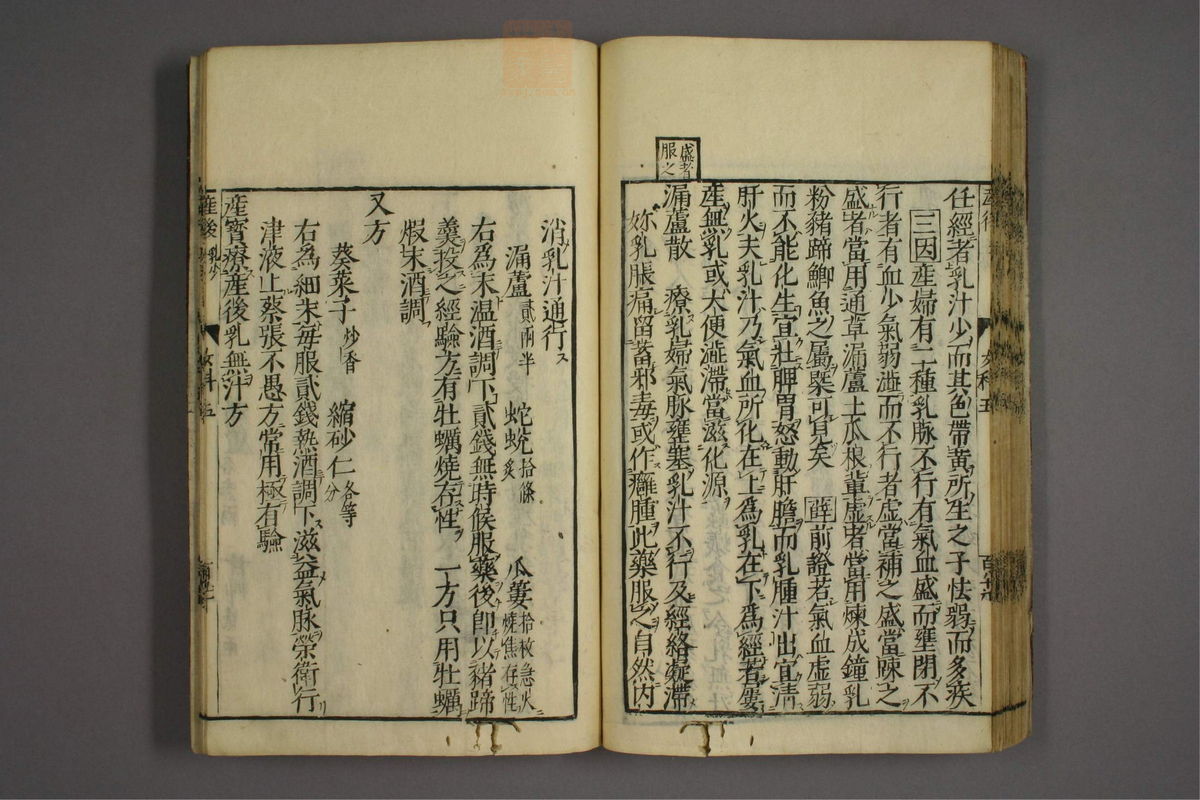 盛者
服之
任經者乳汁少而其色帶黃所生之子怯弱而多疾
三因產婦有二種乳脉不行有氣血盛而壅閉不
行者有血少氣弱澁而不行者虛當補之盛當踈之
盛者當用通草漏蘆土瓜根輩虛者當用煉成鐘乳
粉豬蹄鯽魚之屬槩可見矣 薛前證若氣血虛弱
而不能化生宜壯脾胃怒動肝膽而乳腫汁出宜清
肝火夫乳汁乃氣血所化在上爲乳在下爲經若屢
產無乳或大便澁滯當滋化源
漏蘆散 療乳婦氣脉壅塞乳汁不行及經絡凝滯
妳乳脹痛留蓄邪毒或作癰腫此藥服之自然內
消乳汁通行
漏蘆貳兩半 蛇蛻拾條炙 瓜蔞拾枚急火燒焦存性
右爲末溫酒調下貳錢無時候服藥後卽以豬蹄
羹投之經驗方有牡蠣燒存性 一方只用牡蠣
煆末酒調
又方
葵菜子炒香 縮砂仁各等分
右爲細末每服貳錢熱酒調下滋益氣脉榮衛行
津液上蔡張不愚方常用極有驗
產寶療產後乳無汁方
產後
女科五